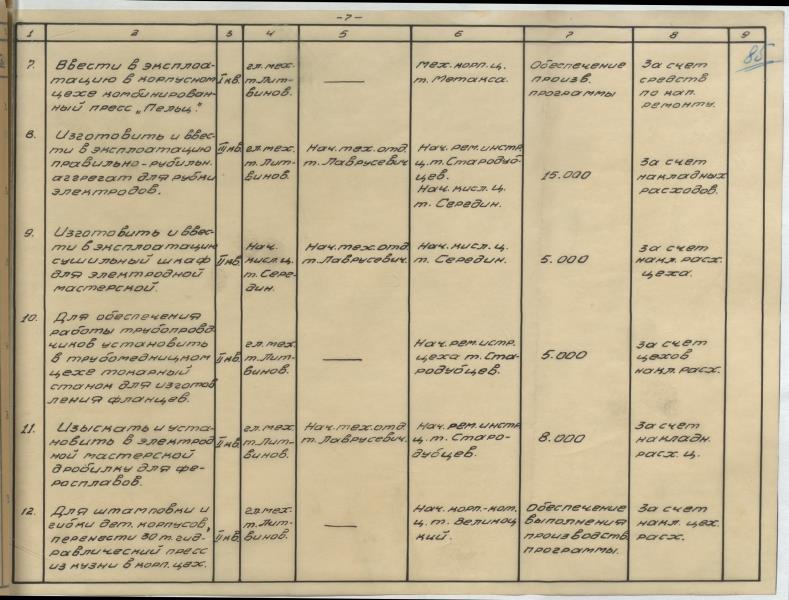 -7-
85
1 2 3 4 5 6 7 8 9
7. Ввести в эксплоа-
тацию в корпусном
цехе комбинирован-
ный пресс „Пельц".
I кв.
гл. мех.
т. Лит-
винов.
—
мех. корп. ц.
т. Метакса.
Обеспечение
произв.
программы
За счет
средств
по кап.
ремонту.
8. Изготовить и ввес-
ти в эксплоатацию
правильно-рубильн.
аггрегат для рубки
электродов.
III кв.
гл. мех.
т. Лит-
винов.
Нач. тех. отд.
т. Лаврусевич
Нач. рем. инстр.
ц. т. Стародуб-
цев.
Нач. кисл. ц.
т. Середин.
15.000
За счет
накладных
расходов.
9. Изготовить и ввес-
ти в эксплоатацию
сушильный шкаф
для электродной
мастерской.
II кв.
Нач.
кисл. ц.
т. Сере-
дин.
Нач. тех. отд.
т. Лаврусевич.
Нач. кисл. ц.
т. Середин.
5.000
За счет
накл. расх.
цеха.
10. Для обеспечения
работы трубопровд
чиков установить
в трубомедницком
цехе токарный
станок для изготов
ления фланцев.
II кв.
гл. мех.
т. Лит-
винов.
—
Нач. рем. истр.
цеха т. Ста-
родубцев.
5.000
За счет
цехов
накл. расх.
11. Изыскать и уста-
новить в электрод
ной мастерской
дробилку для фе-
росплавов.
II кв.
гл. мех.
т. Лит-
винов.
Нач. тех. отд
т. Лаврусевич.
Нач. рем. инстр
ц. т. Старо-
дубцев.
8.000
За счет
накладн.
расх. ц.
12. Для штамповки и
гибки дет. корпусов,
перенести 30 т. гид-
равлический пресс
из кузни в корп. цех.
II кв.
гл. мех.
т. Лит-
винов.
—
Нач. корп.-кот.
ц. т. Великоц
кий.
Обеспечение
выполнения
производств.
программы.
За счет
накл. цех.
расх.